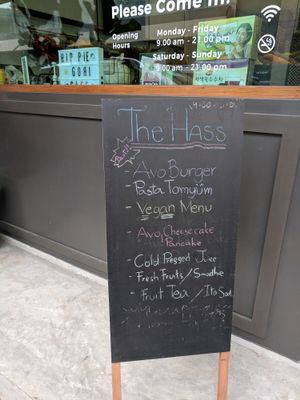 Please Come In!
Opening Hours
Monday - Friday
9.00 am - 21.00 pm
Saturday - Sunday
9.00 am - 21.00 pm
HIP PIE
GOAL
The Hass
- Avo Burger
- Pasta Tomyum
- Vegan Menu
- Avo Cheesecake
Pancake
- Cold Pressed Juice
- Fresh Fruits / Smoothie
- Fruit Tea /